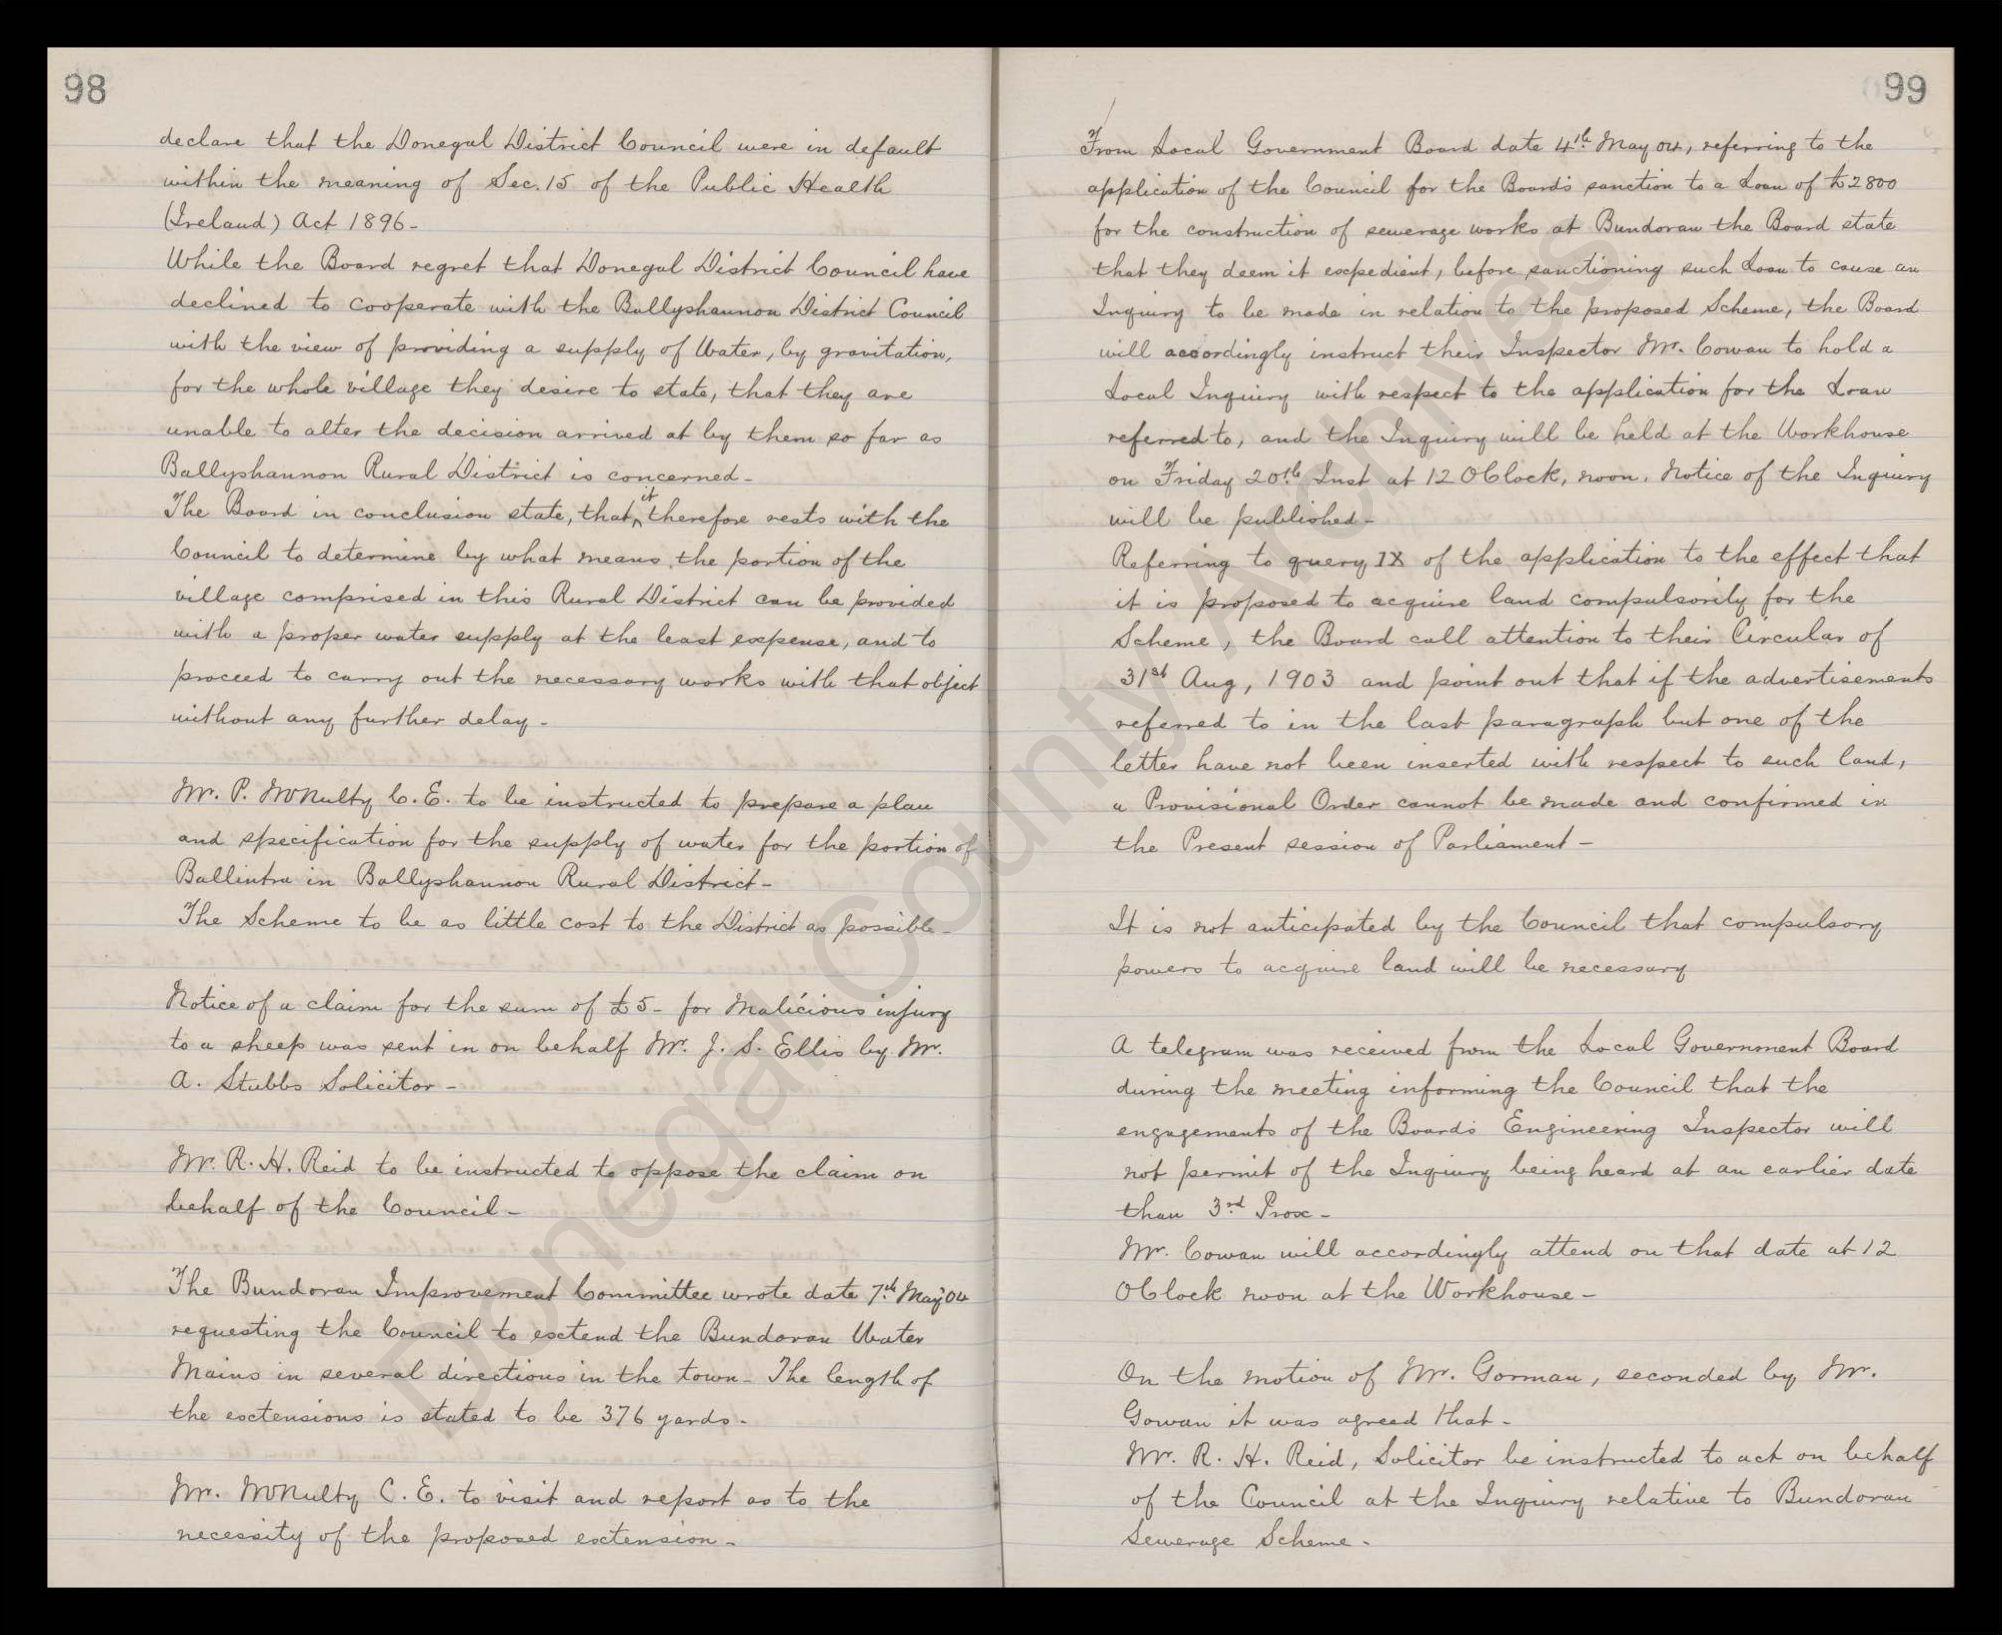 98
declare that the Donegal District Council were in default
within the meaning of Sec. 15 of the Public Health
(Ireland) Act 1896-
While the Board regret that Donegal District Council have
declined to cooperate with the Ballyshannon District Council
with the view of providing a supply of Water, by gravitation,
for the whole village they desire to state, that they are
unable to alter the decision arrived at by them so far as
Ballyshannon Rural District is concerned-
The Board in conclusion state, that it therefore rests with the
Council to determine by what means the portion of the
village comprised in this Rural District can be provided
with a proper water supply at the least expense, and to
proceed to carry out the necessary works with that object
without any further delay-
Mr. P. McNulty C.E. to be instructed to prepare a plan
and specification for the supply of water for the portion of
Ballintra in Ballyshannon Rural District-
The Scheme to be as little cost to the District as possible-
Notice of a claim for the sum of £5- for Malicious injury
to a sheep was sent in on behalf Mr. J. S. Ellis by Mr.
A. Stubbs Solicitor-
Mr. R. H. Reid to be instructed to oppose the claim on
behalf of the Council-
The Bundoran Improvement Committee wrote date 7th May 04
requesting the Council to extend the Bundoran Water
Mains in several directions in the town- The length of
the extensions is stated to be 376 yards-
Mr. McNulty C.E. to visit and report as to the
necessity of the proposed extension-
99
From Local Government Board date 4th May 04, referring to the
application of the Council for the Board's sanction to a Loan of £2800
for the construction of sewerage works at Bundoran the Board state
that they deem it expedient, before sanctioning such Loan to cause an
Inquiry to be made in relation to the proposed Scheme, the Board
will accordingly instruct their Inspector Mr. Cowan to hold a
Local Inquiry with respect to the application for the Loan
referred to, and the Inquiry will be held at the Workhouse
on Friday 20th Inst at 12 OClock, noon. Notice of the Inquiry
will be published-
Referring to query IX of the application to the effect that
it is proposed to acquire land compulsorily for the
Scheme, the Board call attention to their Circular of
31st Aug, 1903 and point out that if the advertisements
referred to in the last paragraph but one of the
letter have not been inserted with respect to such land,
a Provisional Order cannot be made and confirmed in
the Present session of Parliament-
It is not anticipated by the Council that compulsory
powers to acquire land will be necessary
A telegram was received from the Local Government Board
during the meeting informing the Council that the
engagements of the Board's Engineering Inspector will
not permit of the Inquiry being heard at an earlier date
than 3rd Prox-
Mr. Cowan will accordingly attend on that date at 12
OClock noon at the Workhouse-
On the motion of Mr. Gorman, seconded by Mr.
Gowan it was agreed that-
Mr. R. H. Reid, Solicitor be instructed to act on behalf
of the Council at the Inquiry relative to Bundoran
Sewerage Scheme-
Donegal County Archives